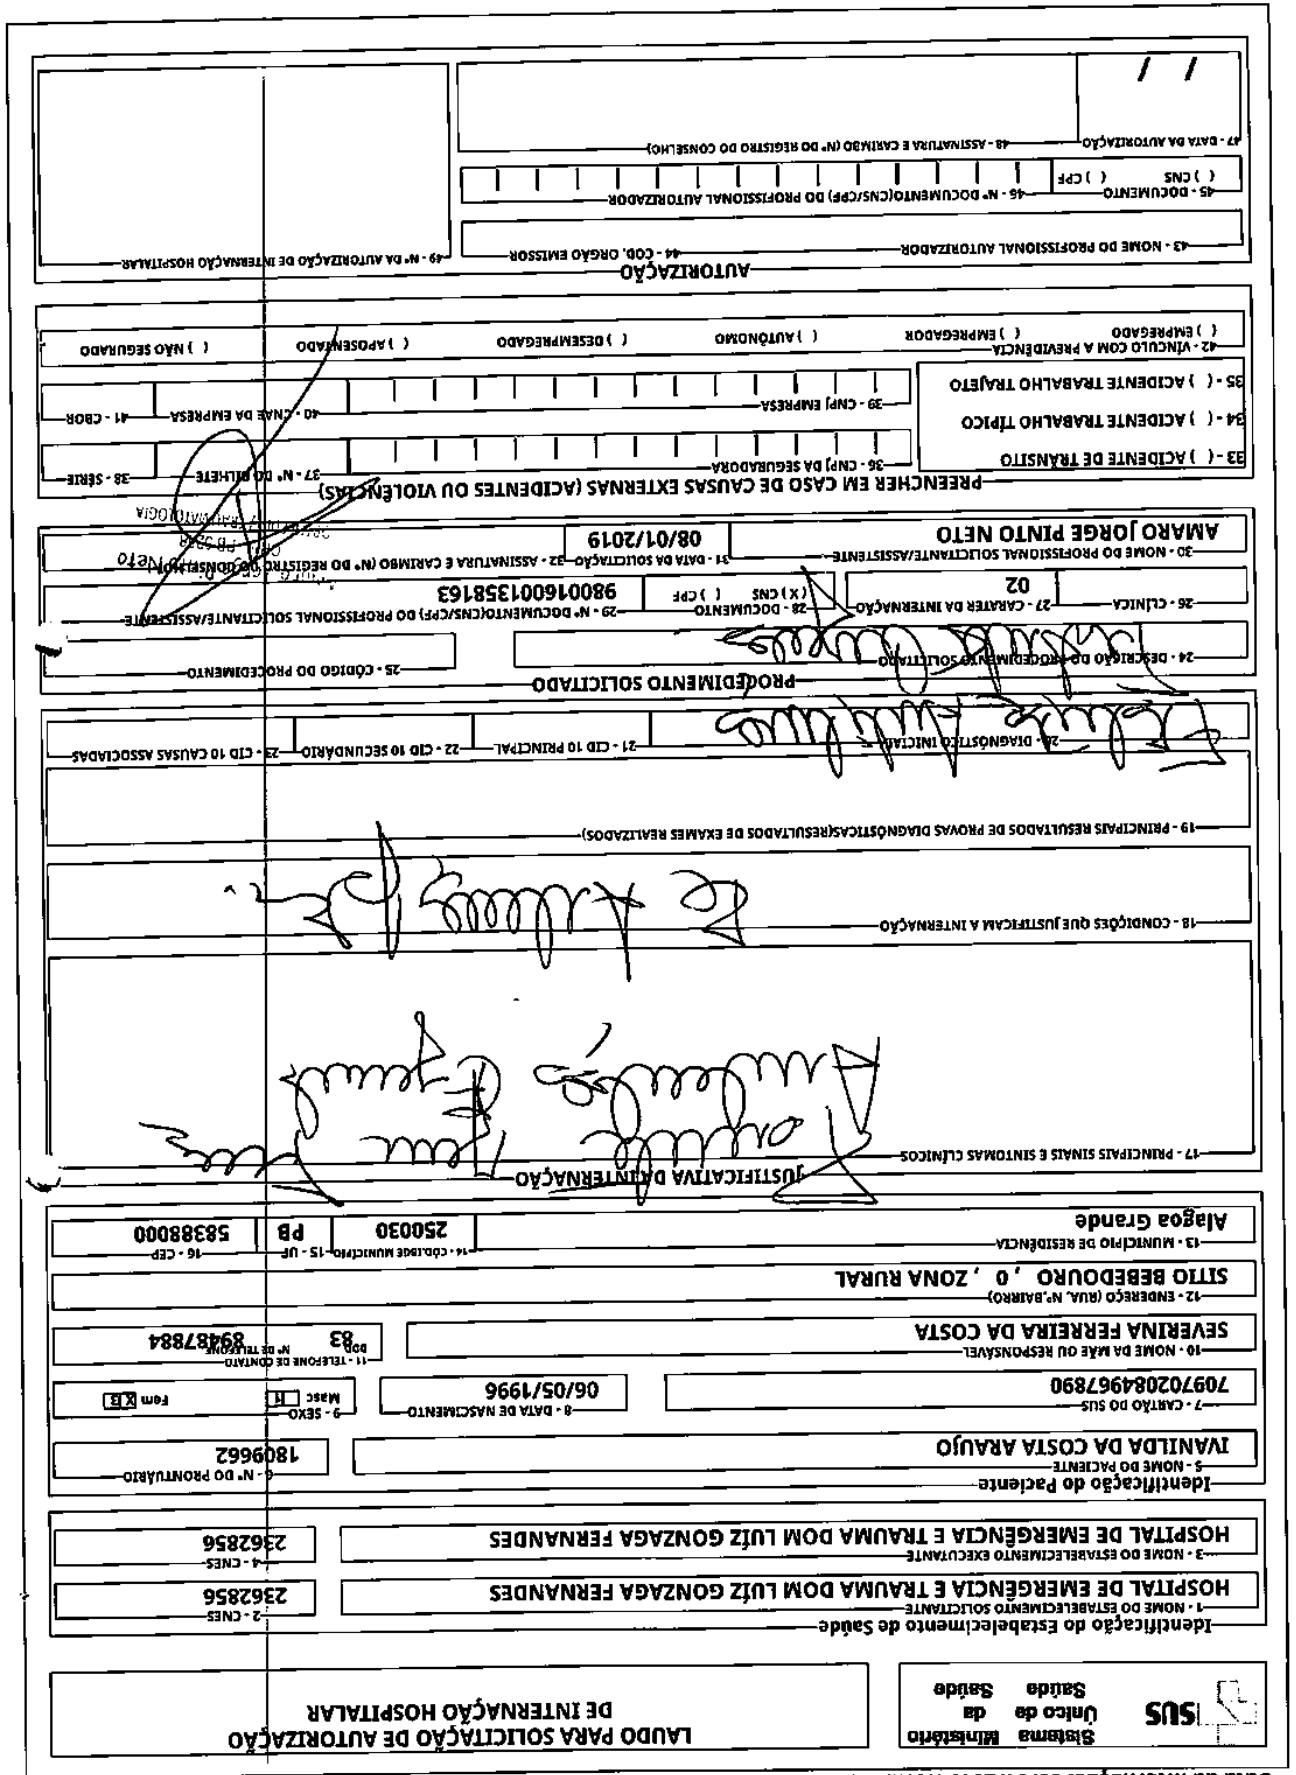 SUS
Sistema Único de Saúde
Ministério da Saúde
LAUDO PARA SOLICITAÇÃO DE AUTORIZAÇÃO
DE INTERNAÇÃO HOSPITALAR
Identificação do Estabelecimento de Saúde
1 - NOME DO ESTABELECIMENTO SOLICITANTE
HOSPITAL DE EMERGÊNCIA E TRAUMA DOM LUÍZ GONZAGA FERNANDES
2 - CNES
2362856
3 - NOME DO ESTABELECIMENTO EXECUTANTE
HOSPITAL DE EMERGÊNCIA E TRAUMA DOM LUÍZ GONZAGA FERNANDES
4 - CNES
2362856
Identificação do Paciente
5 - NOME DO PACIENTE
IVANILDA DA COSTA ARAUJO
6 - N° DO PRONTUÁRIO
1809662
7 - CARTÃO DO SUS
709702084967890
8 - DATA DE NASCIMENTO
06/05/1996
9 - SEXO
Masc Fem X 3
10 - NOME DA MÃE OU RESPONSÁVEL
SEVERINA FERREIRA DA COSTA
11 - TELEFONE DE CONTATO
DDD N° DE TELEFONE
83 89487884
12 - ENDEREÇO (RUA, N°,BAIRRO)
SITIO BEBEDOURO , 0 , ZONA RURAL
13 - MUNICÍPIO DE RESIDÊNCIA
Alagoa Grande
14 - CÓD.IBGE MUNICÍPIO
250030
15 - UF
PB
16 - CEP
58388000
JUSTIFICATIVA DA INTERNAÇÃO
17 - PRINCIPAIS SINAIS E SINTOMAS CLINICOS
18 - CONDIÇÕES QUE JUSTIFICAM A INTERNAÇÃO
19 - PRINCIPAIS RESULTADOS DE PROVAS DIAGNÓSTICAS(RESULTADOS DE EXAMES REALIZADOS)
20 - DIAGNÓSTICO INICIAL
21 - CID 10 PRINCIPAL
22 - CID 10 SECUNDÁRIO
23 - CID 10 CAUSAS ASSOCIADAS
PROCEDIMENTO SOLICITADO
24 - DESCRIÇÃO DO PROCEDIMENTO SOLICITADO
25 - CÓDIGO DO PROCEDIMENTO
26 - CLÍNICA
27 - CARATER DA INTERNAÇÃO
02
28 - DOCUMENTO
( X ) CNS ( ) CPF
29 - N° DOCUMENTO(CNS/CPF) DO PROFISSIONAL SOLICITANTE/ASSISTENTE
980016001358163
30 - NOME DO PROFISSIONAL SOLICITANTE/ASSISTENTE
AMARO JORGE PINTO NETO
31 - DATA DA SOLICITAÇÃO
08/01/2019
32 - ASSINATURA E CARIMBO (N° DO REGISTRO DO CONSELHO)
Neto
PREENCHER EM CASO DE CAUSAS EXTERNAS (ACIDENTES OU VIOLÊNCIAS)
33 - ( ) ACIDENTE DE TRÂNSITO
34 - ( ) ACIDENTE TRABALHO TÍPICO
35 - ( ) ACIDENTE TRABALHO TRAJETO
36 - CNPJ DA SEGURADORA
37 - N° DO BILHETE
38 - SÉRIE
39 - CNPJ EMPRESA
40 - CNAE DA EMPRESA
41 - CBOR
42 - VÍNCULO COM A PREVIDÊNCIA
( ) EMPREGADO ( ) EMPREGADOR ( ) AUTÔNOMO ( ) DESEMPREGADO ( ) APOSENTADO ( ) NÃO SEGURADO
AUTORIZAÇÃO
43 - NOME DO PROFISSIONAL AUTORIZADOR
44 - COD. ORGÃO EMISSOR
49 - N° DA AUTORIZAÇÃO DE INTERNAÇÃO HOSPITALAR
45 - DOCUMENTO
( ) CNS ( ) CPF
46 - N° DOCUMENTO(CNS/CPF) DO PROFISSIONAL AUTORIZADOR
47 - DATA DA AUTORIZAÇÃO
/ /
48 - ASSINATURA E CARIMBO (N° DO REGISTRO DO CONSELHO)